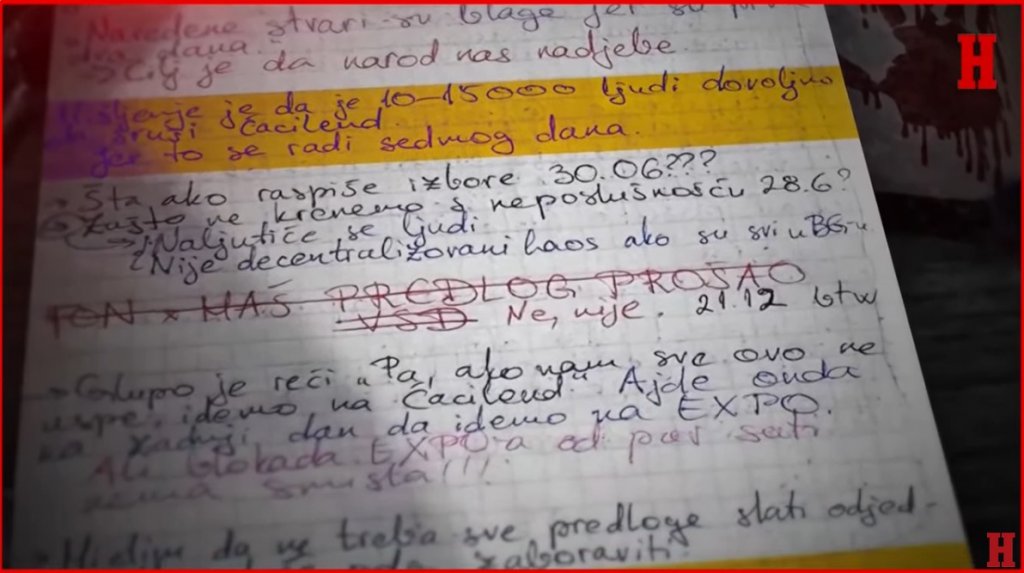 Navedene stvari su blage jer su
dva dana.
→ Cilj je da narod nas nadjebe.
Mišljenje je da je 10–15000 ljudi dovoljno
da sruši Ćacilend.
jer to se radi sedmog dana.
→ Šta ako raspiše izbore 30.06???
Zašto ne krenemo s neposlušnošću 28.6?
→ 1 Naljutiće se ljudi
2 Nije decentralizovani haos ako su svi u BG-u
NAŠ PREDLOG PROŠAO
VSD Ne, nije. 21:12 btw
→ Glupo je reći „Pa, ako nam sve ovo ne
uspe, idemo na Ćacilend“ Ajde onda
na zadnji dan da idemo na EXPO.
Ali blokada EXPO-a od par sati
nema smisla!!!
da ne treba sve predloge slati odjed-
zaboraviti
H
H